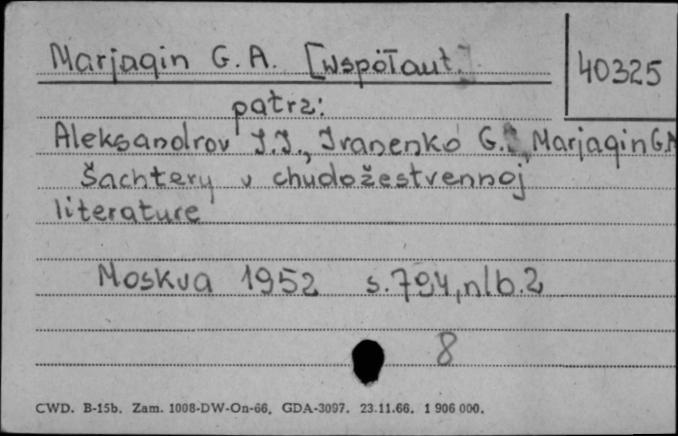 Marjagin G. A. [współaut.]
40325
patrz:
Aleksandrov I.I., Ivanenko G. , Marjagin G.A
Šachtery v chudožestvennoj
literature
Moskva 1952 s.794, nlb.2
8
CWD. B-15b. Zam. 1008-DW-On-66. GDA-3097. 23.11.66. 1 906 000.